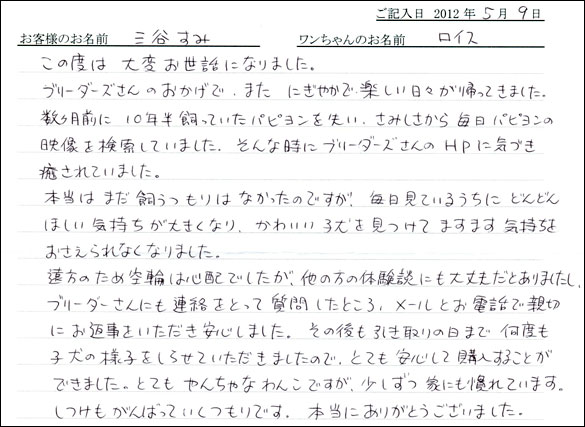 ご記入日 2012 年 5 月 9 日
お客様のお名前 三谷すみ ワンちゃんのお名前 ロイス
この度は 大変お世話になりました。
ブリーダーズさんのおかげで、また にぎやかで楽しい日々が帰ってきました。
数ヶ月前に 10年半飼っていたパピヨンを失い、さみしさから毎日パピヨンの
映像を検索していました。そんな時にブリーダーズさんの HPに気づき
癒されていました。
本当は まだ飼うつもりは なかったのですが、毎日見ているうちに どんどん
ほしい気持ちが大きくなり、かわいい子犬を見つけて ますます気持ちを
おさえられなくなりました。
遠方のため空輸は心配でしたが、他の方の体験談にも大丈夫だとありましたし、
ブリーダーさんにも連絡をとって質問したところ、メールとお電話で親切
にお返事をいただき安心しました。その後も引き取りの日まで何度も
子犬の様子をしらせていただきましたので、とても安心して購入することが
できました。とても やんちゃなわんこですが、少しずつ家にも慣れています。
しつけもがんばっていくつもりです。本当にありがとうございました。